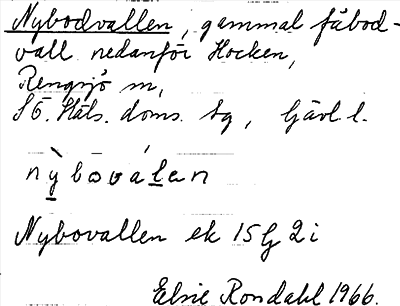 Nybodvallen, gammal fäbod-
vall nedanför Hocken,
Rengsjö sn,
SÖ. Häls. doms. sg, Gävl l.
nỳboválen
Nybovallen ek 15G 2i
Elsie Rondahl 1966.